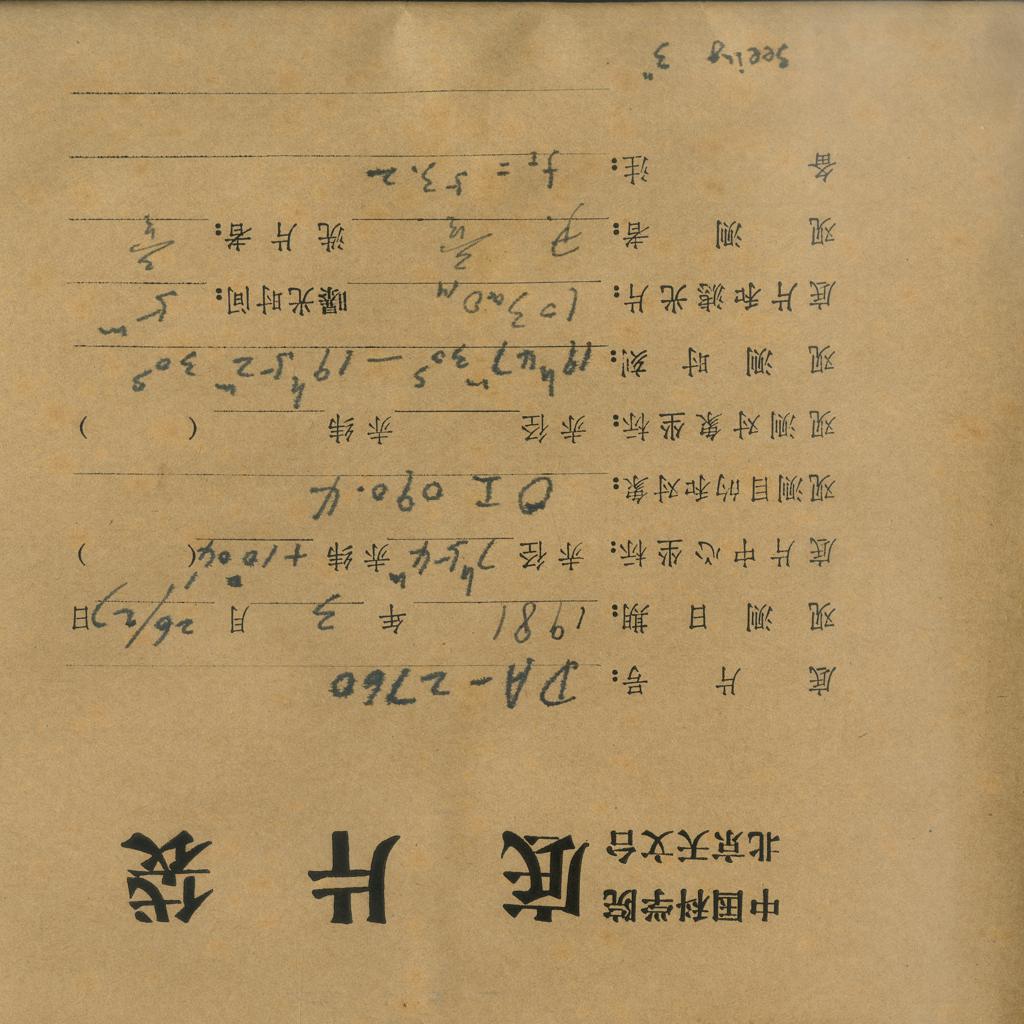 中国科学院
北京天文台
底片袋
底片号: DA-2760
观测日期: 1981年3月26/27日
底片中心坐标: 赤径 7h54m 赤纬 +10°04′ ( )
观测目的和对象: OI 090.4
观测对象坐标: 赤径 赤纬 ( )
观测时刻: 19h47m30s — 19h52m30s
底片和滤光片: 曝光时间: 5m
观测者: 洗片者:
备注: = 53.2
Seeing 3"